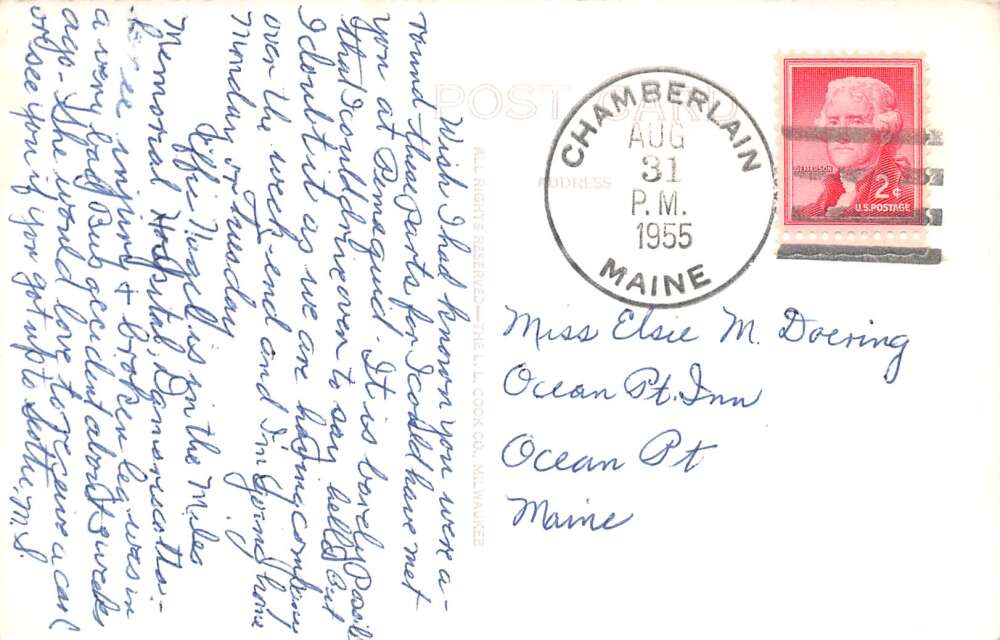 POST CARD
ADDRESS
ALL RIGHTS RESERVED—THE L. L. COOK CO., MILWAUKEE
CHAMBERLAIN
AUG
31
P.M.
1955
MAINE
JEFFERSON
2¢
U.S. POSTAGE
Miss Elsie M. Doering
Ocean Pt. Inn
Ocean Pt
Maine
Wish I had known you were a-
round these parts for I could have met
you at Pemaquid. It is barely Possible
that I could drive over to say hello but
I doubt it as we are having company
over the week-end and I'm going home
Monday or Tuesday.
Effie Nugell is in the Miles
Memorial Hospital, Damariscotta -
knee injury & broken leg was in
a very bad Bus accident about 3 weeks
ago. She would love to receive a card
or see you if you got up to Scotty. M. S.